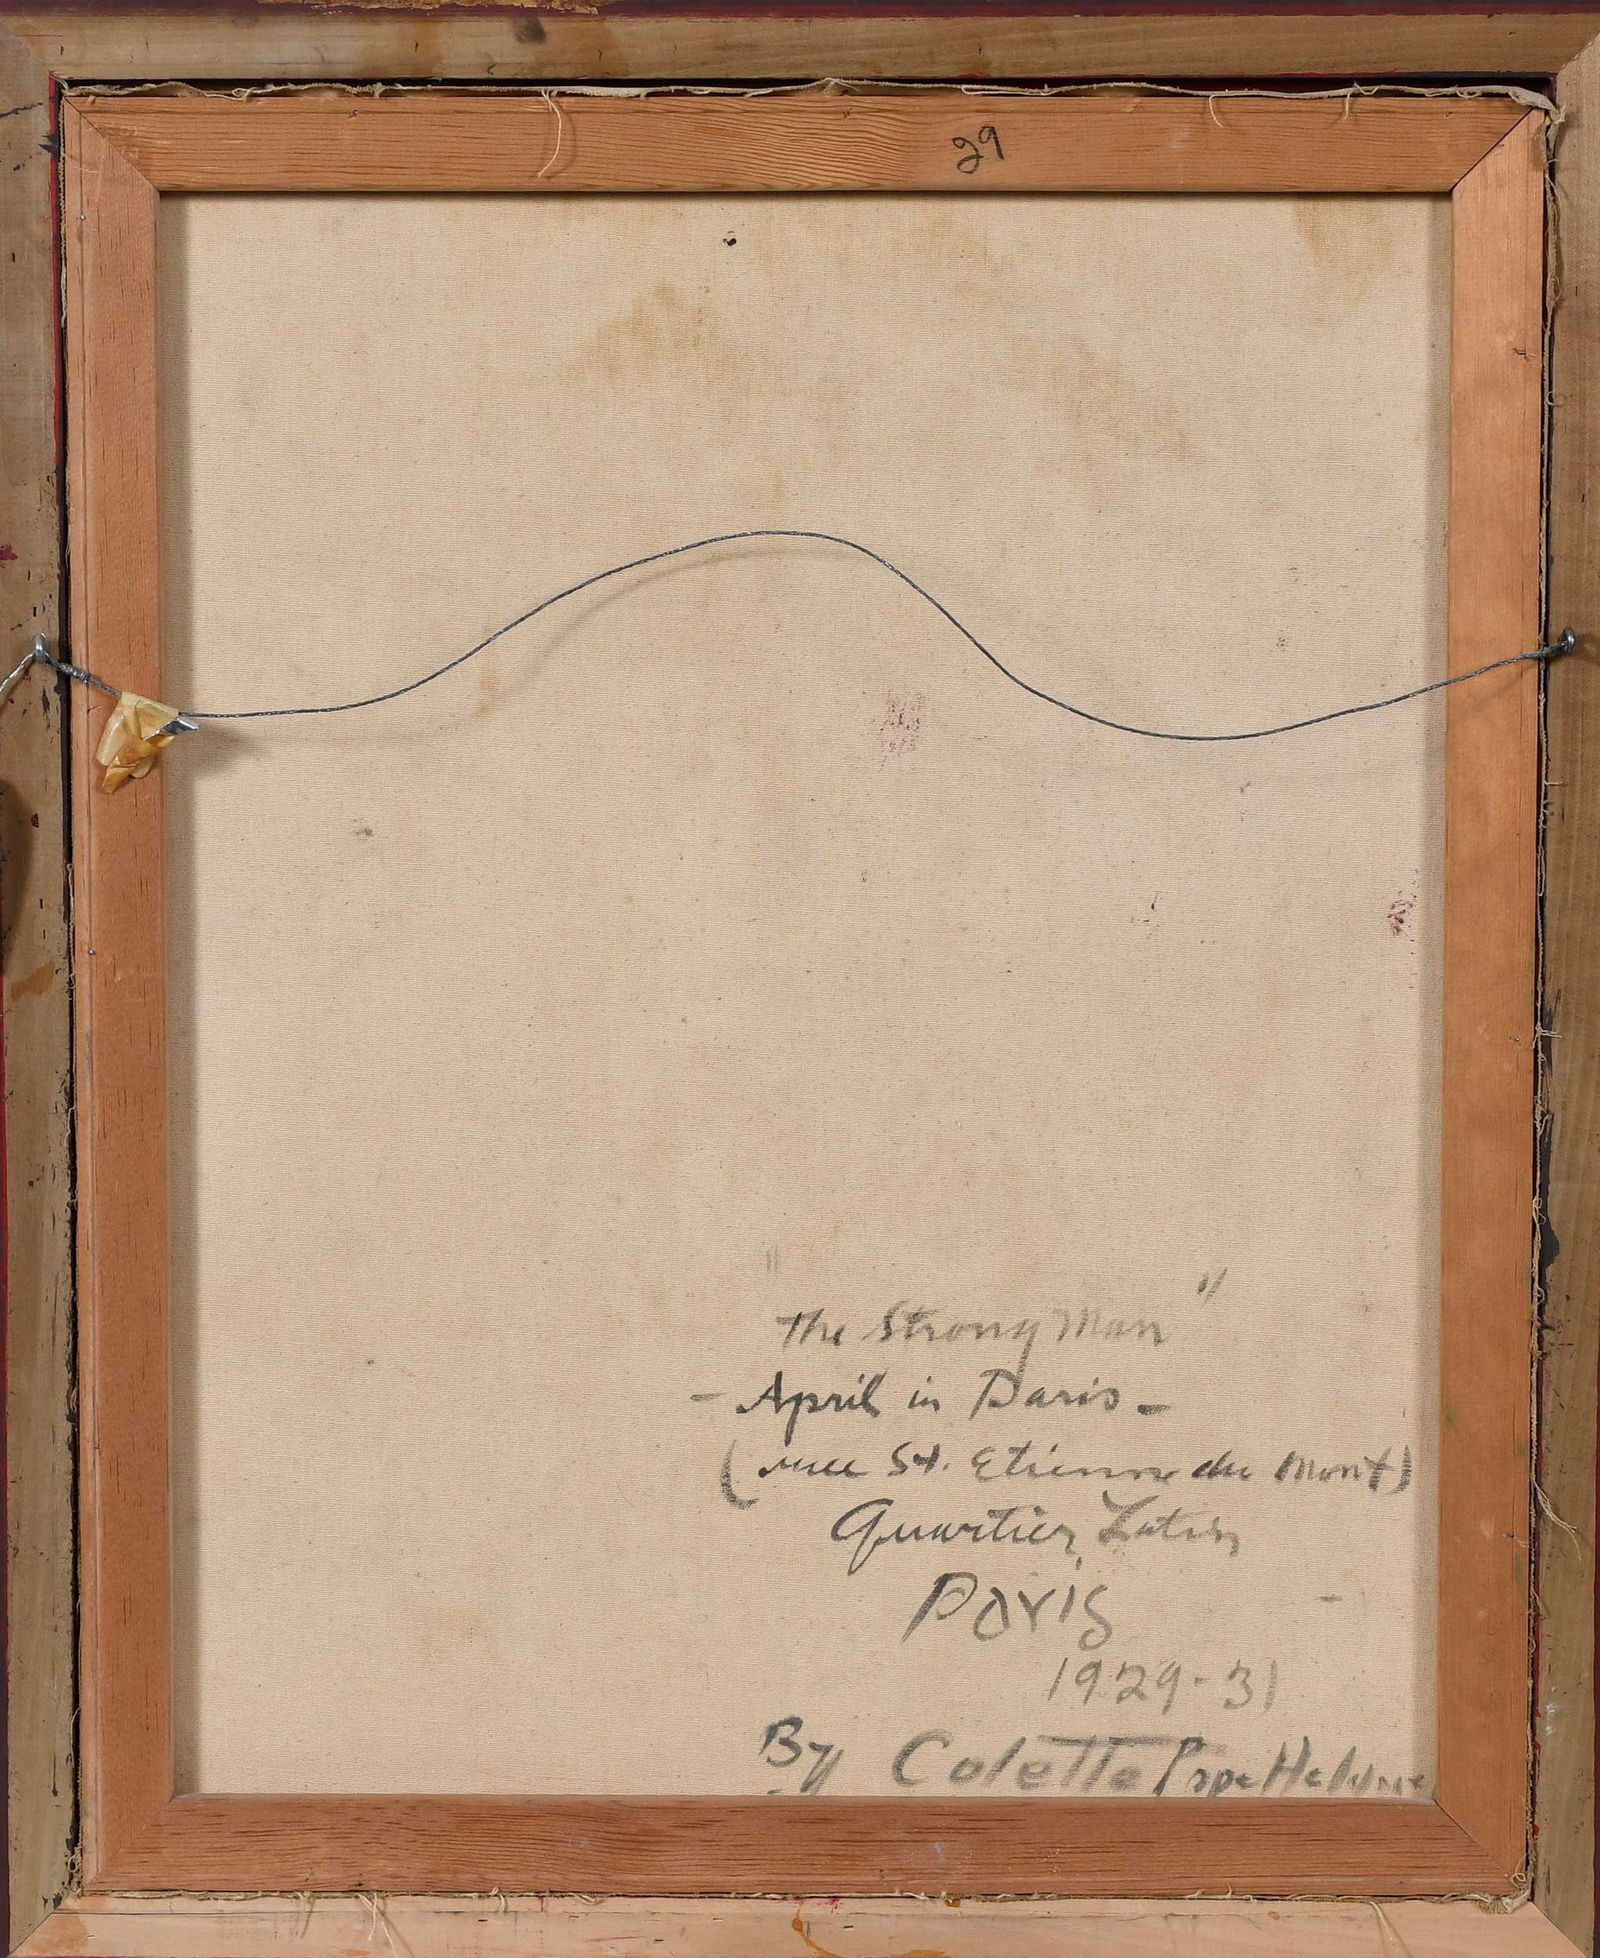 29
"The Strong Man"
- April in Paris -
(rue St. Etienne du Mont)
Quartier Latin
Paris
1929-31
By Colette Pope Heldner